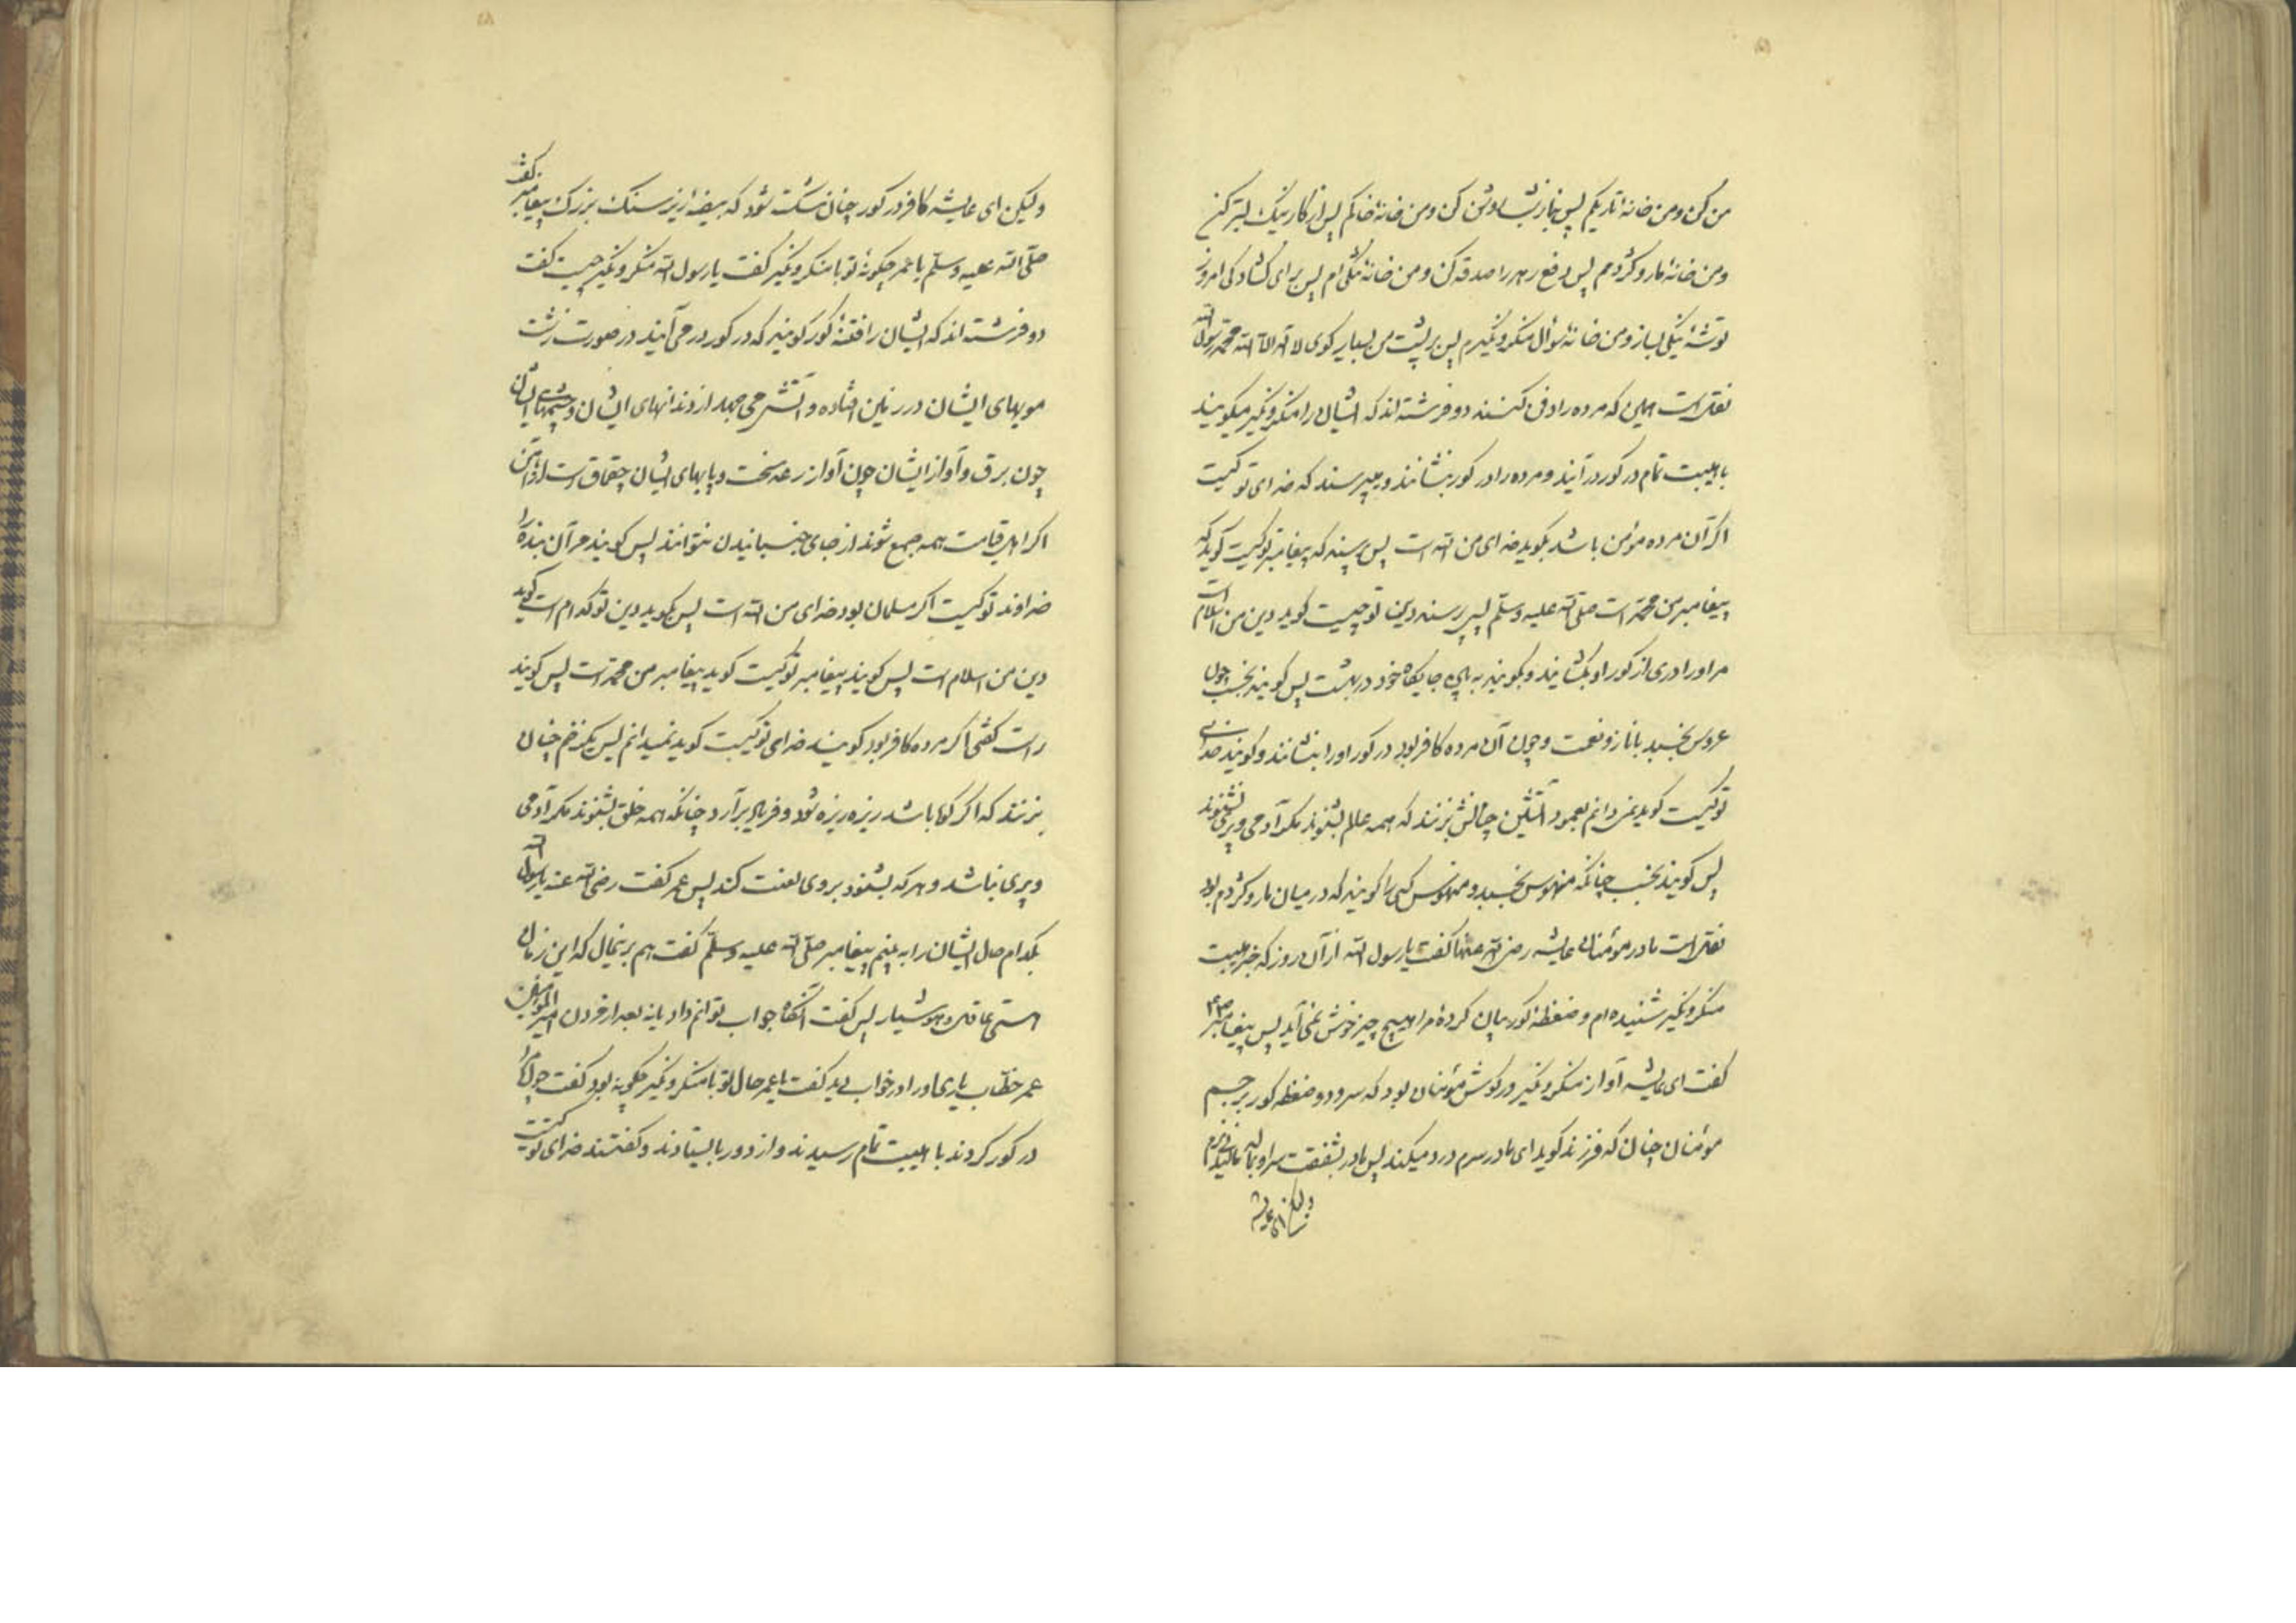 من کن و من خانهٔ تاریکم پس بنماز شب روشن کن و من خانهٔ خاکم پس از کار نیک بستر کن
و من خانهٔ مار و کژدمم پس دفع زهر را صدقه کن و من خانهٔ تنکی ام پس برای کشادکی امروز
توشهٔ نیکی بساز و من خانهٔ سؤال منکر و نکیرم پس بر پشت من بسیار کوی لا اله الا الله محمد رسول الله
نقلست همین که مرده را دفن کنند دو فرشته اند که ایشان را منکر و نکیر میکویند
با هیبت تمام در کور در آیند و مرده را در کور بنشانند و میپرسند که خدای تو کیست
اکر آن مرده مؤمن باشد بکوید خدای من الله است پس پرسند که پیغامبر تو کیست کوید که
پیغامبر من محمد است صلی الله علیه وسلم پس پرسند دین تو چیست کوید دین من اسلام است
مر او را دری از کور او بکشایند و بکویند به بین جایکاه خود در بهشت پس کویند بخسب چون
عروس بخسبد با ناز و نعمت و چون آن مرده کافر بود در کور او را بنشانند و کویند خدای
تو کیست کوید نمی دانم بعمود آتشین چنانش بزنند که همه عالم بشنوند مکر آدمی و پری نشنوند
پس کویند بخسب چنانکه منهوس بخسبد و منهوس کسی را کویند که در میان مار و کژدم بود
نقلست مادر مؤمنان عایشه رضی الله عنها کفت یا رسول الله از آن روز که خبر هیبت
منکر و نکیر شنیده ام و ضغطهٔ کور بیان کردهٔ مرا هیچ چیز خوش نمی آید پس پیغامبر
کفت ای عایشه آواز منکر و نکیر در کوش مؤمنان بود که سرود و ضغطه کور بر جسم
مؤمنان چنان که فرزند کوید ای مادر سرم درد میکند پس مادر بشفقت سر او
ولیکن ای عایشه
ولیکن ای عایشه کافر در کور چنان شکسته شود که بیضه از زیر سنک بزرک پیغامبر کفت
صلی الله علیه وسلم یا عمر چکونهٔ تو با منکر و نکیر کفت یا رسول الله منکر و نکیر چیست کفت
دو فرشته اند که ایشان را فتنهٔ کور کویند که در کور در می آیند در صورت زشت
مویهای ایشان در زمین افتاده و آتش می جهد از دندانهای ایشان و چشمهای ایشان
چون برق و آواز ایشان چون آواز رعد سخت و پایهای ایشان چقماق است از آهن
اکر اهل قیامت همه جمع شوند از جای جنبانیدن نتوانند پس کویند مر آن بنده را
خداوند تو کیست اکر مسلمان بود خدای من الله است پس بکوید دین تو کدام است کوید
دین من اسلام است پس کویند پیغامبر تو کیست کوید پیغامبر من محمد است پس کویند
راست کفتی اکر مرده کافر بود کویند خدای تو کیست کوید نمیدانم پس یک زخم چنان
بزنند که اکر کوه باشد ریزه ریزه شود و فریاد بر آرد چنانکه همه خلق بشنوند مکر آدمی
و پری نباشد و هر که بشنود بر وی لعنت کند پس عمر کفت رضی الله عنه یا رسول الله
بکدام حال ایشان را به بینم پیغامبر صلی الله علیه وسلم کفت هم برینحال که این زمان
هستی عاقل و هوشیار پس کفت آنکاه جواب توانم داد یا نه بعد از مردن امیر المؤمنین
عمر خطاب یاری او را در خواب دید کفت یا عمر حال تو با منکر و نکیر چکونه بود کفت چون مرا
در کور کردند با هیبت تمام رسیدند و از دور بایستادند و کفتند خدای تو کیست